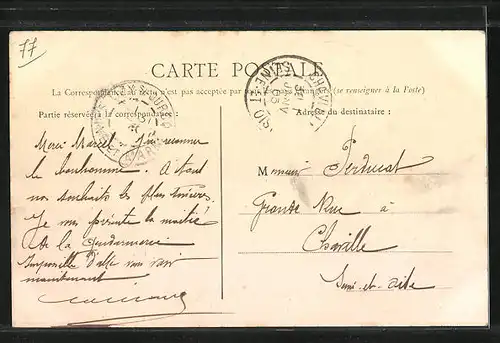 77
CARTE POSTALE
La Correspondance au recto n'est pas acceptée par pays étrangers (se renseigner à la Poste)
Partie réservée à la correspondance
Adresse du destinataire :
CHEVREUSE
SEINE-ET-OISE
JANV
Merci Marcel
le bonhomme. A tous
nos souhaits les plus sincères.
Je vous présente la moitié
de la Gendarmerie
Impossible d'aller vous voir
maintenant
Monsieur Perducat
Grande Rue à
Chaville
Seine-et-Oise